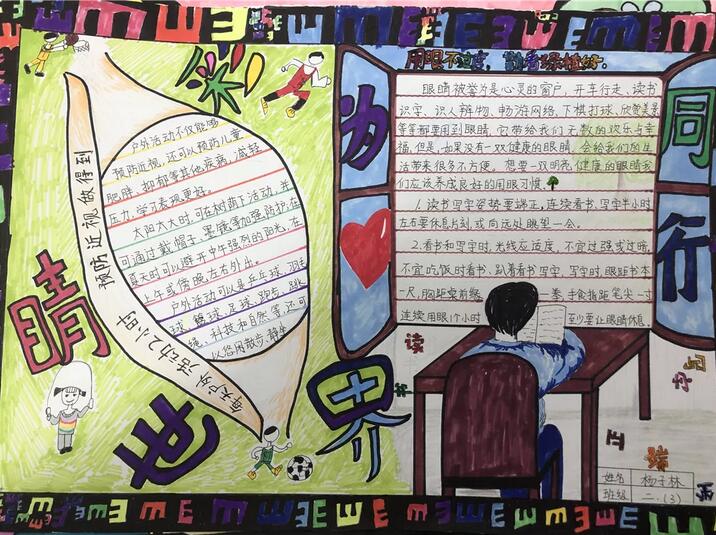 睛
彩
世
界
预防近视做得到
每天户外活动2小时
户外活动不仅能够
预防近视,还可以预防儿童
肥胖、抑郁等其他疾病,减轻
压力,学习表现更好。
太阳太大时,可在树荫下活动,并
可通过戴帽子、墨镜等加强防护;在
夏天时可以避开中午强烈的阳光,在
上午或傍晚左右外出。
户外活动可以是乒乓球、羽毛
球、篮球、足球、跑步、跳
绳、科技和自然等,还可
以悠闲散步、静坐
为
同
行
眼睛被誉为是心灵的窗户,开车行走、读书
识字、识人辨物、畅游网络、下棋打球、欣赏美景
等等都要用到眼睛,它带给我们无数的欢乐与幸
福。但是,如果没有一双健康的眼睛,会给我们的生
活带来很多不方便。想要一双明亮健康的眼睛我
们应该养成良好的用眼习惯。
1.读书写字姿势要端正,连续看书、写字半小时
左右要休息片刻,或向远处眺望一会。
2.看书和写字时,光线应适度,不宜过强或过暗,
不宜吃饭时看书、趴着看书写字,写字时眼距书本
一尺,胸距桌前缘一拳,手食指距笔尖一寸
连续用眼1个小时至少要让眼睛休息。
读
书
写
字
正
端
姓名 杨子林
班级 二.(3)